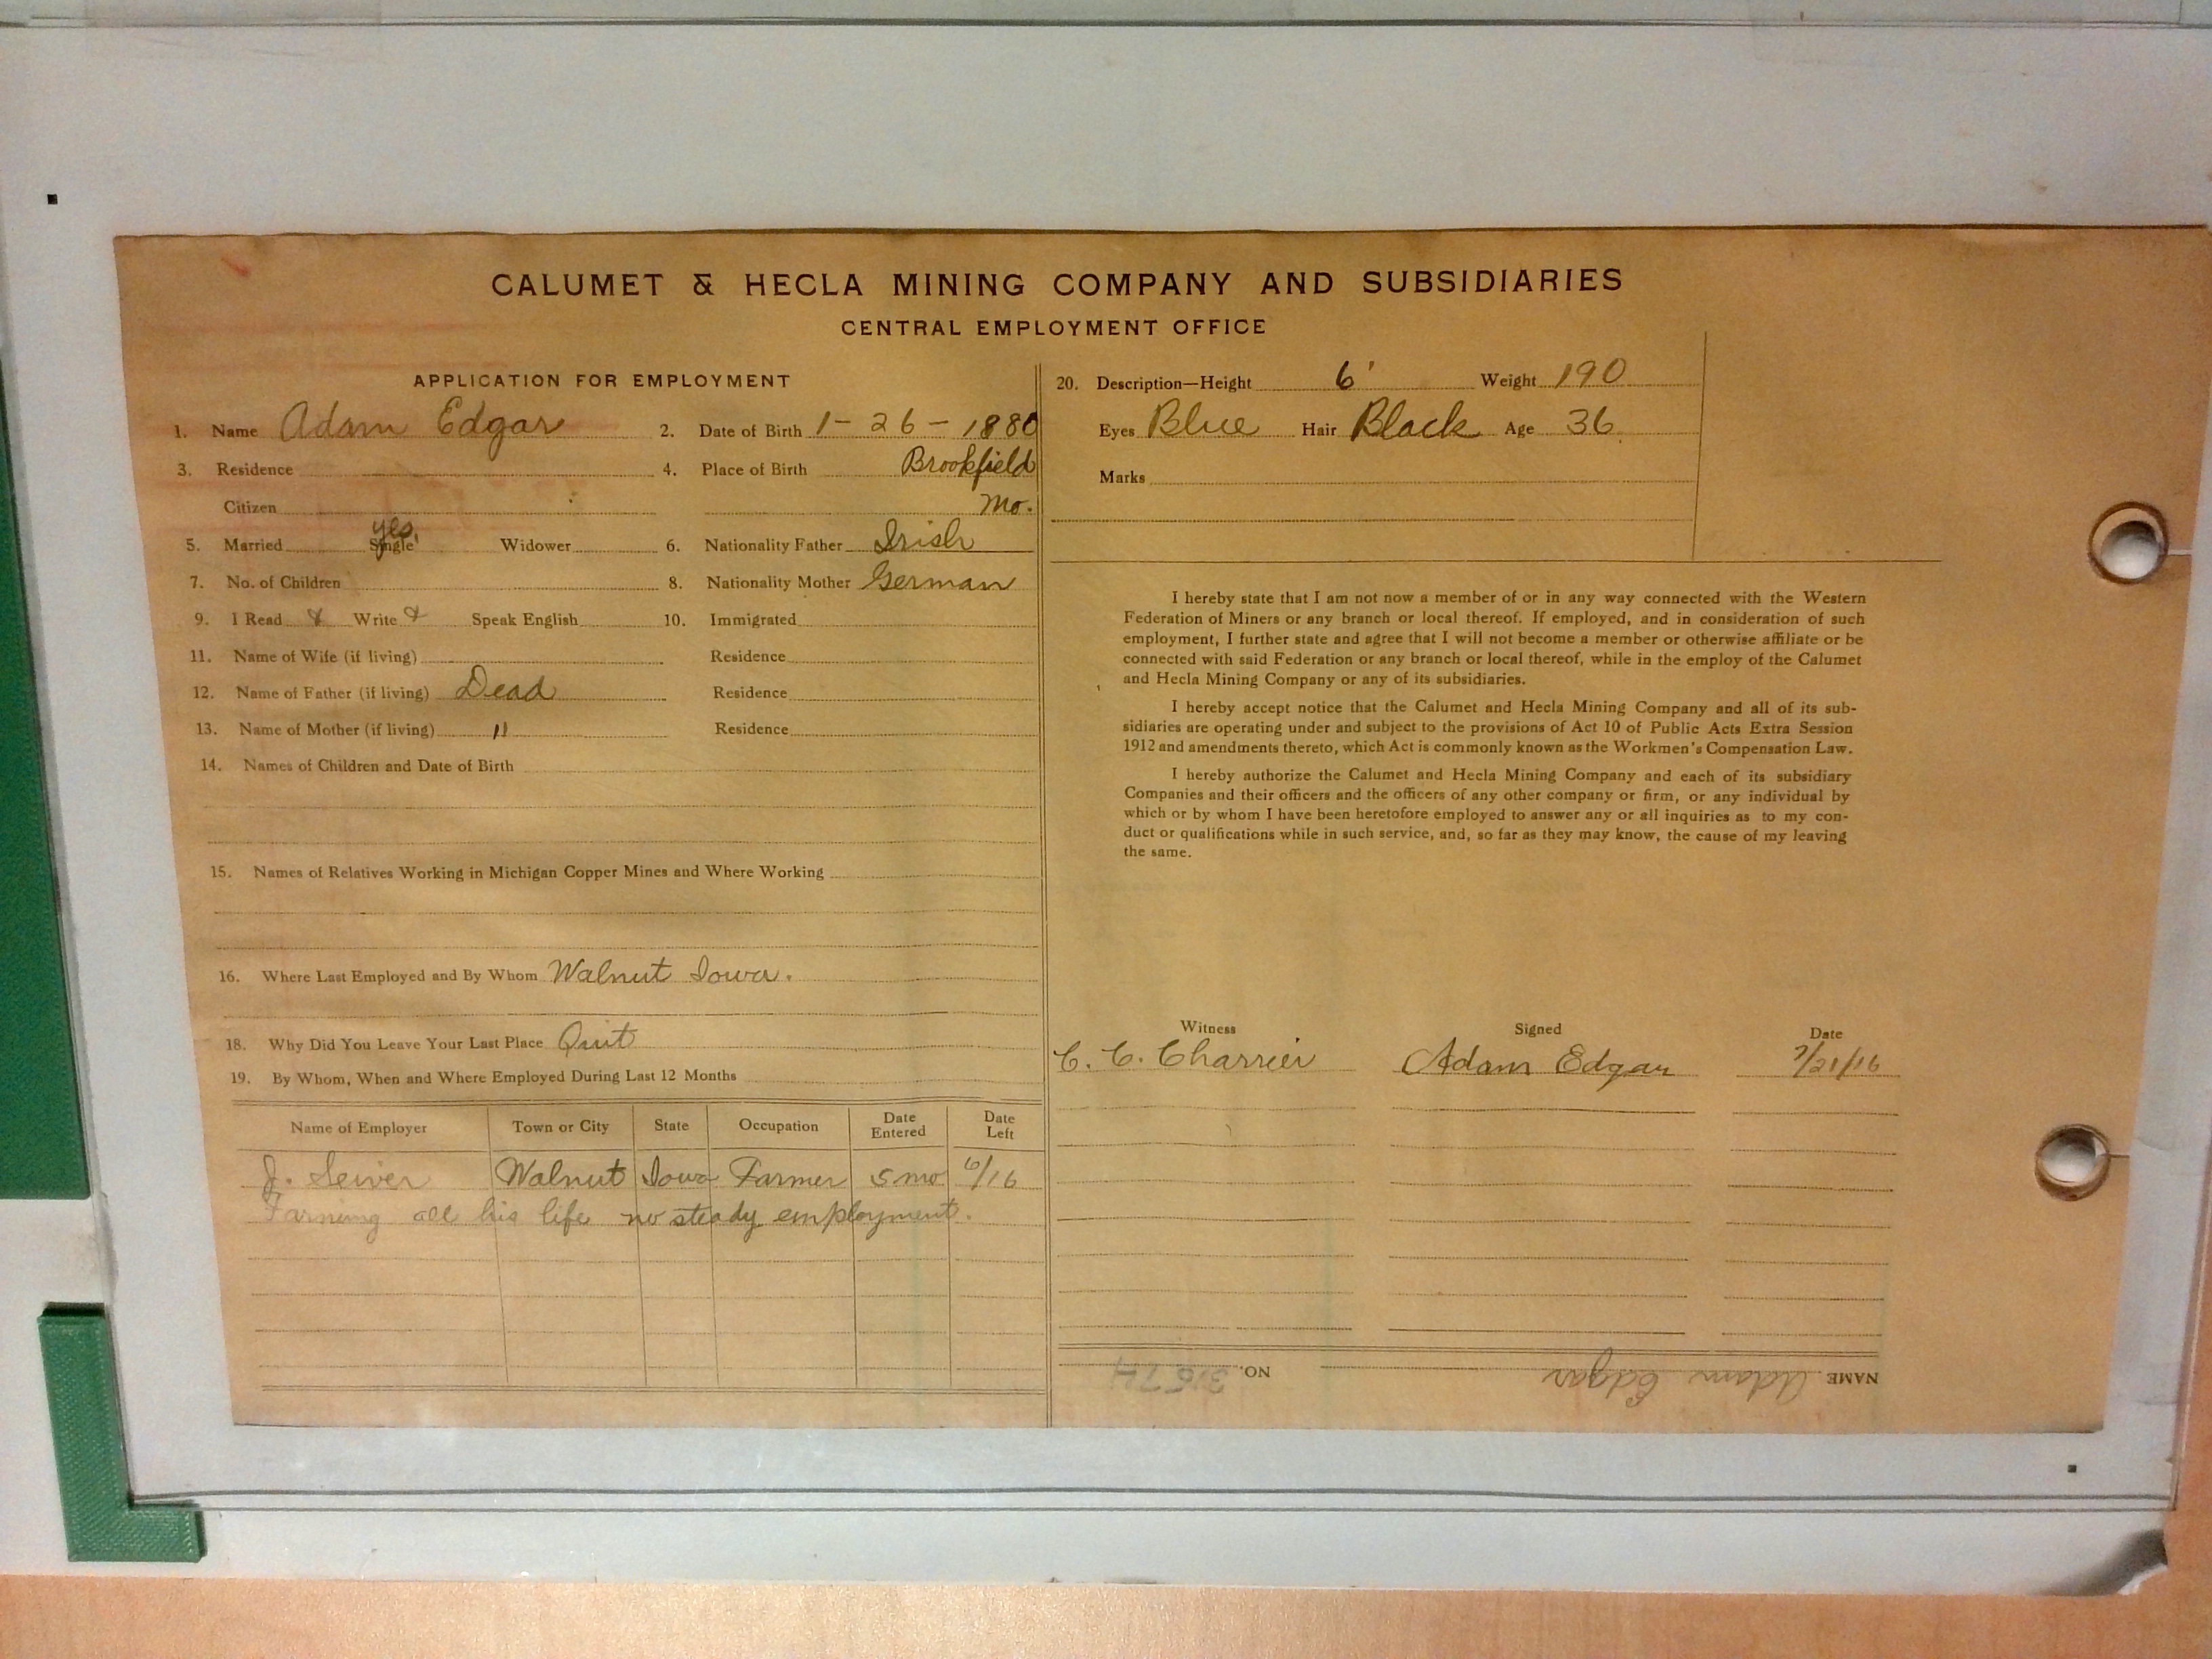 CALUMET & HECLA MINING COMPANY AND SUBSIDIARIES
CENTRAL EMPLOYMENT OFFICE
APPLICATION FOR EMPLOYMENT
1. Name Adam Edgar 2. Date of Birth 1-26-1880
3. Residence 4. Place of Birth Brookfield
Citizen Mo.
5. Married Single yes Widower 6. Nationality Father Irish
7. No. of Children 8. Nationality Mother German
9. I Read Write Speak English 10. Immigrated
11. Name of Wife (if living) Residence
12. Name of Father (if living) Dead Residence
13. Name of Mother (if living) " Residence
14. Names of Children and Date of Birth
15. Names of Relatives Working in Michigan Copper Mines and Where Working
16. Where Last Employed and By Whom Walnut Iowa.
18. Why Did You Leave Your Last Place Quit
19. By Whom, When and Where Employed During Last 12 Months
Name of Employer Town or City State Occupation Date Entered Date Left
J. Walnut Iowa Farmer 5 mo 6/16
Farming all his life no steady employment.
20. Description—Height 6' Weight 190
Eyes Blue Hair Black Age 36
Marks
I hereby state that I am not now a member of or in any way connected with the Western
Federation of Miners or any branch or local thereof. If employed, and in consideration of such
employment, I further state and agree that I will not become a member or otherwise affiliate or be
connected with said Federation or any branch or local thereof, while in the employ of the Calumet
and Hecla Mining Company or any of its subsidiaries.
I hereby accept notice that the Calumet and Hecla Mining Company and all of its sub-
sidiaries are operating under and subject to the provisions of Act 10 of Public Acts Extra Session
1912 and amendments thereto, which Act is commonly known as the Workmen's Compensation Law.
I hereby authorize the Calumet and Hecla Mining Company and each of its subsidiary
Companies and their officers and the officers of any other company or firm, or any individual by
which or by whom I have been heretofore employed to answer any or all inquiries as to my con-
duct or qualifications while in such service, and, so far as they may know, the cause of my leaving
the same.
Witness Signed Date
C. C. Charrier Adam Edgar 7/21/16
NAME Adam Edgar NO. 31574